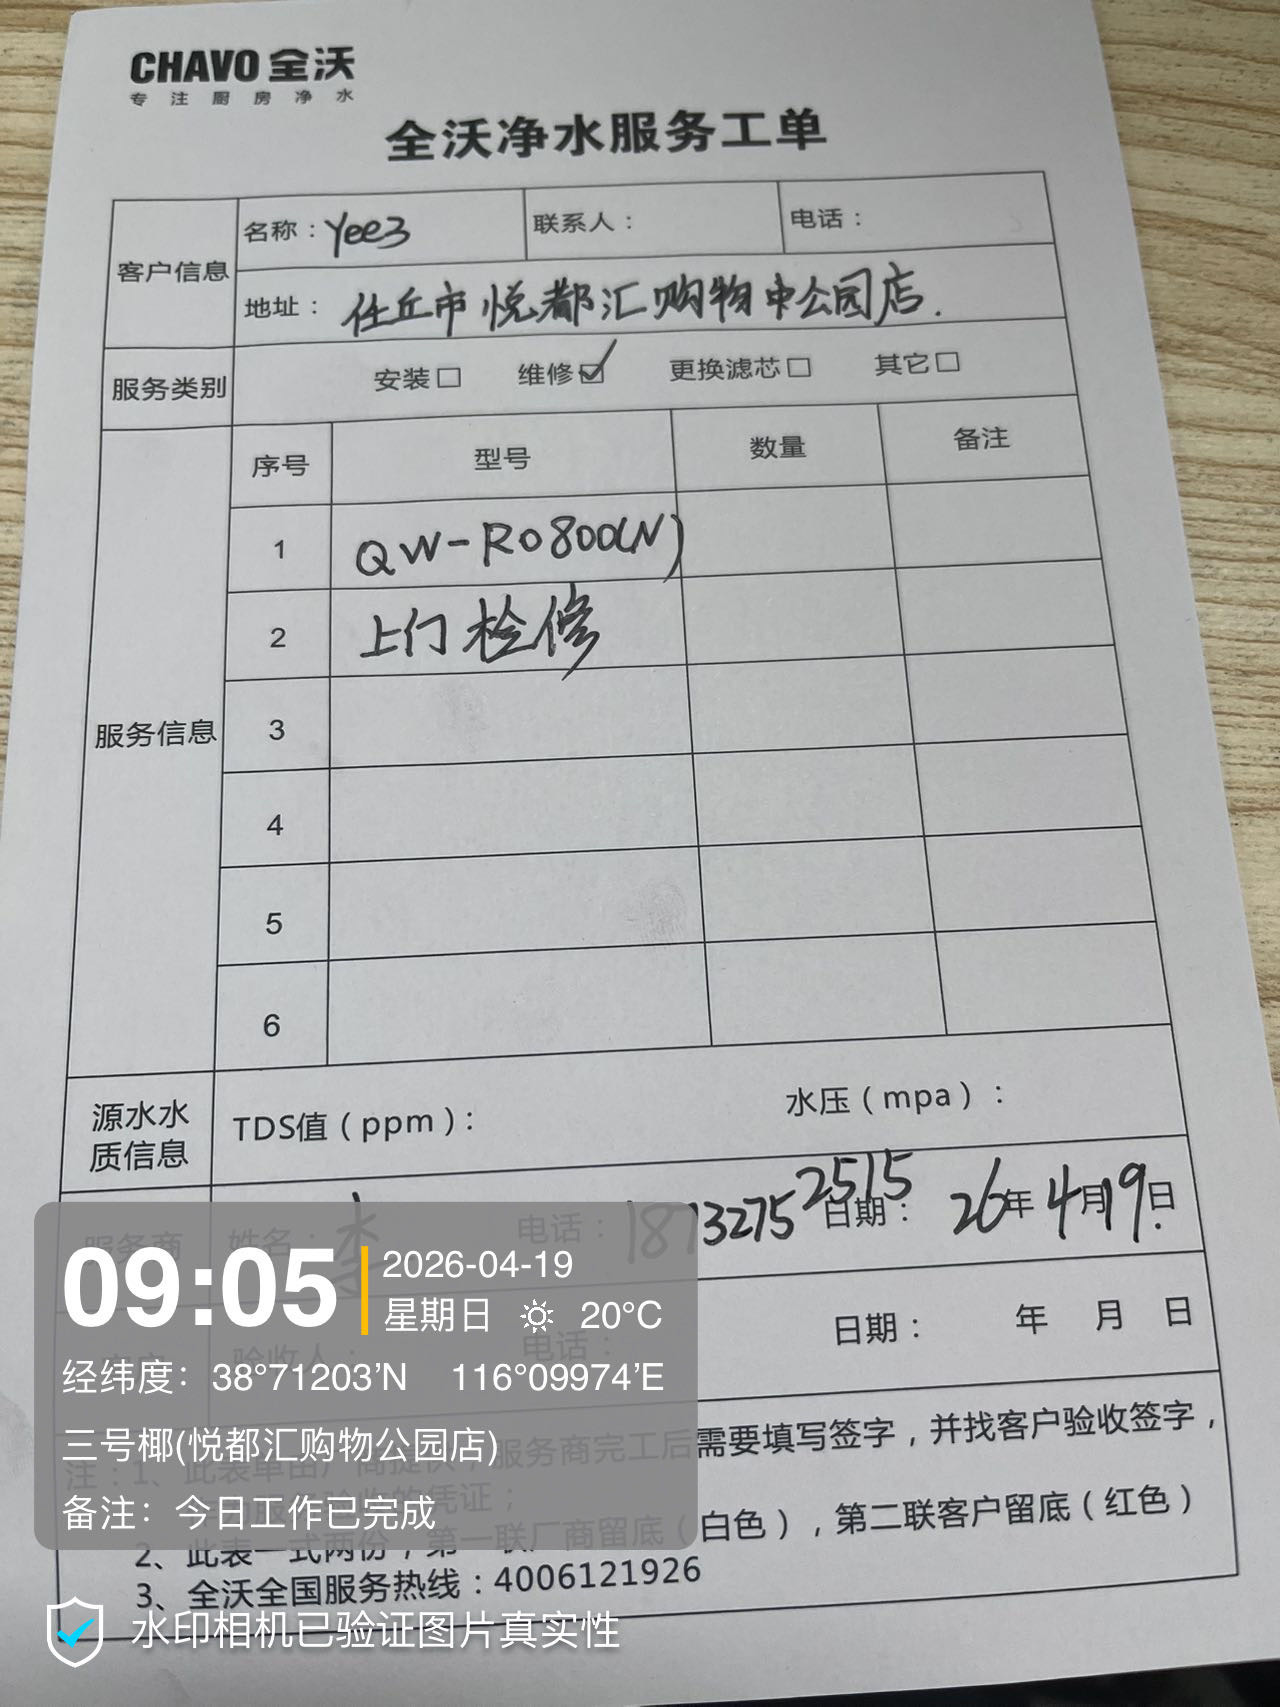 CHAVO 全沃
专注厨房净水
全沃净水服务工单
客户信息 名称：Yee3 联系人： 电话：
地址：任丘市悦都汇购物中公园店.
服务类别 安装□ 维修☑ 更换滤芯□ 其它□
服务信息 序号 型号 数量 备注
1 QW-RO800(N)
2 上门检修
3
4
5
6
源水水质信息 TDS值（ppm）： 水压（mpa）：
服务商 姓名：李 电话：18732752515 日期：26年4月19日
客户 验收人： 电话： 日期： 年 月 日
注：1、此表单由厂商提供，服务商完工后需要填写签字，并找客户验收签字，
的凭证；
2、此表一式两份，第一联厂商留底（白色），第二联客户留底（红色）
3、全沃全国服务热线：4006121926
09:05
2026-04-19
星期日 20°C
经纬度：38°71203'N 116°09974'E
三号椰(悦都汇购物公园店)
备注：今日工作已完成
水印相机已验证图片真实性